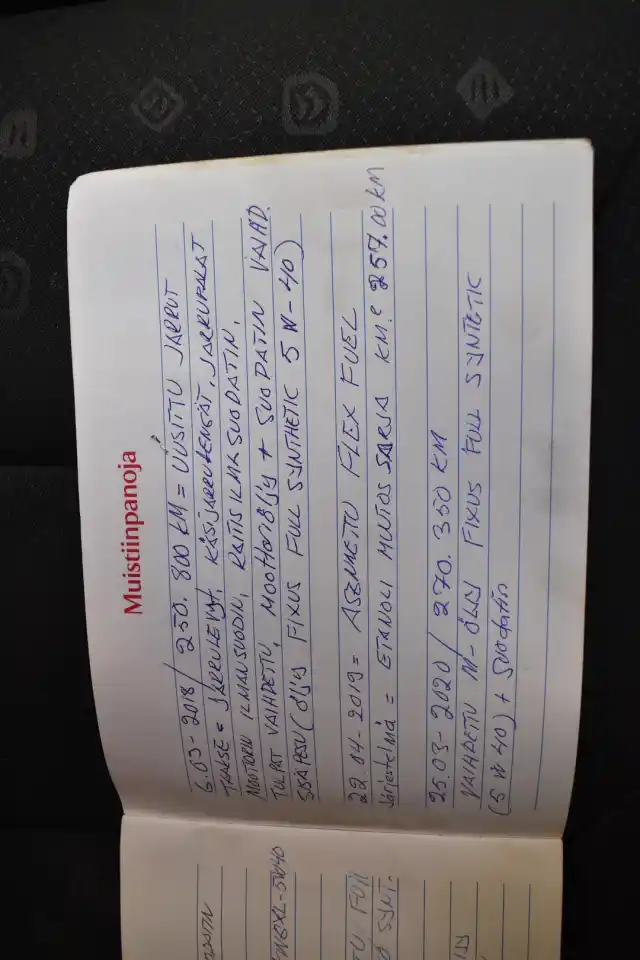 Muistiinpanoja
6.03-2018 / 250.800 KM = UUSITTU JARRUT
TAKSE = JARRULEVYT, KÄSIJARRUKENGÄT, JARRUPALAT
MOOTTORIN ILMANSUODIN, RAITISILMASUODATIN,
TULPAT VAIHDETTU, MOOTTORIÖLJY + SUODATIN VAIHD.
SISÄPESU (ÖLJY FIXUS FULL SYNTHETIC 5 W-40)
22.04-2019 = ASENNETTU FLEX FUEL
Järjestelmä = ETANOLI MUUTOSSARJA KM: 257.00 KM
25.03-2020 / 270.350 KM
VAIHDETTU M-ÖLJY FIXUS FULL SYNTETIC
(5 W 40) + suodatin
5W40
SYNT.